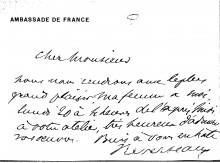 AMBASSADE DE FRANCE
Cher Monsieur
nous nous rendrons avec le plus
grand plaisir, ma femme & moi,
lundi 20 à heures de l'après midi
à votre atelier, très heureux d'admirer
vos œuvres. Bien à vous